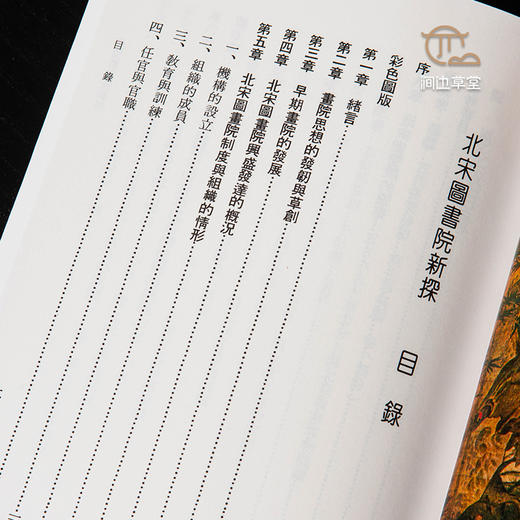 间边草堂
北宋圖書院新探 目錄
序
彩色圖版
第一章 緒言
第二章 畫院思想的發軔與草創
第三章 早期畫院的發展
第四章 北宋圖畫院興盛發達的概況
第五章 北宋圖畫院制度與組織的情形
一、機構的設立
二、組織的成員
三、教育與訓練
四、任官與官職
目錄